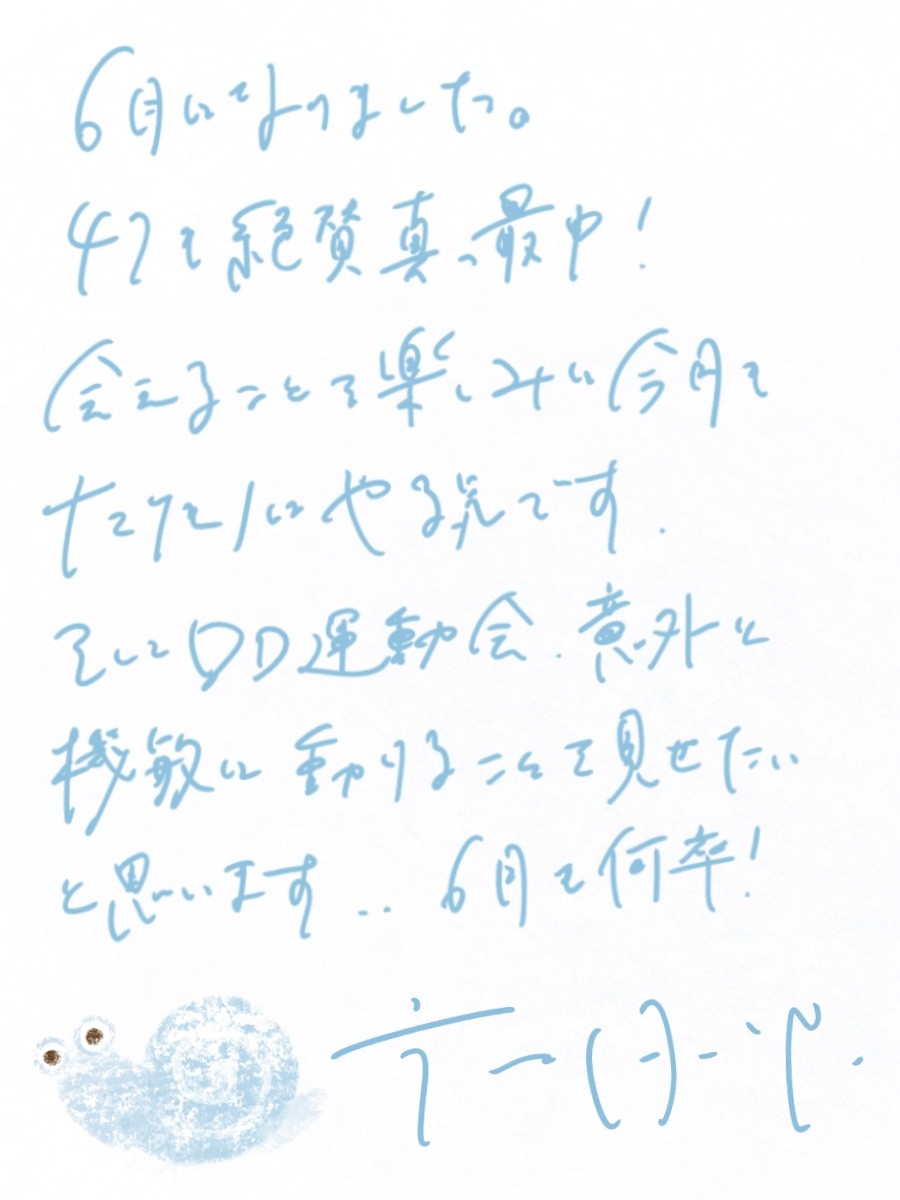 6月になりました。
47も絶賛真っ最中!
会えることを楽しみに今月も
やる気です.
そしてDD運動会. 意外と
機敏に動けることを見せたい
と思います... 6月も何卒!